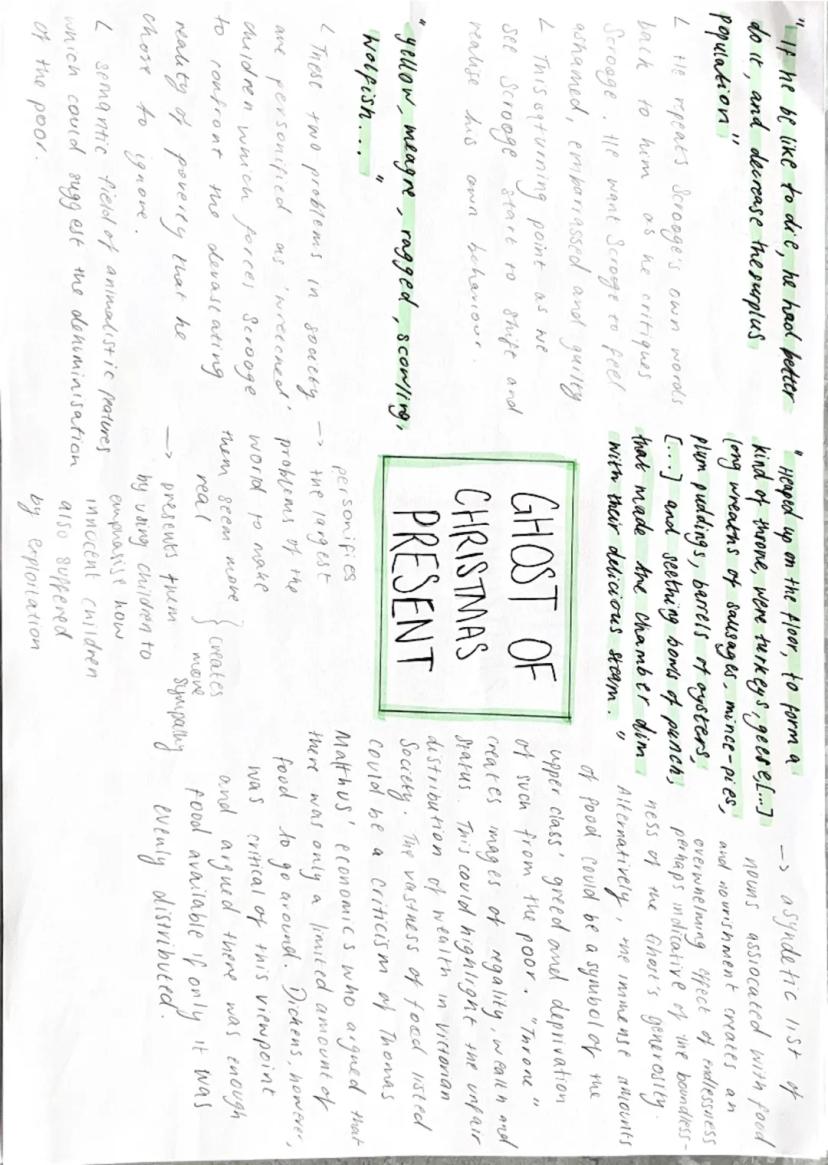 "If he be like to die, he had better
do it, and decrease the surplus
population"
↳ He repeats Scrooge's own words
back to him as he critiques
Scrooge. He want Scrooge to feel
ashamed, embarrassed and guilty
↳ This a turning point as we
see Scrooge start to shift and
realise his own behaviour.
"Heaped up on the floor, to form a
kind of throne, were turkeys, geese, [...]
long wreaths of sausages, mince-pies,
plum puddings, barrels of oysters,
[...] and seething bowls of punch,
that made the chamber dim
with their delicious steam."
→ asyndetic list of
nouns assiocated with food
and nourishment creates an
overwhelming effect of endlessness
perhaps indicative of the boundless-
ness of the Ghost's generosity.
Alternatively, the immense amounts
of food could be a symbol of the
upper class' greed and deprivation
of such from the poor. "Throne"
creates images of regality, wealth and
status. This could highlight the unfair
distribution of wealth in Victorian
Society. The vastness of food listed
could be a criticism of Thomas
Malthus' economics who argued that
there was only a limited amount of
food to go around. Dickens, however,
was critical of this viewpoint
and argued there was enough
food available if only it was
evenly distributed.
GHOST OF
CHRISTMAS
PRESENT
"yellow, meagre, ragged, scowling,
wolfish..."
↳ These two problems in society
are personified as 'wretched'
children which forces Scrooge
to confront the devastating
reality of poverty that he
chose to ignore.
↳ semantic field of animalistic features
which could suggest the dehuminisation
of the poor.
personifies
→ the largest
problems of the
world to make
them seem more
real
} creates
more
sympathy
→ presents them
by using children to
emphasise how
innocent children
also suffered
by exploitation